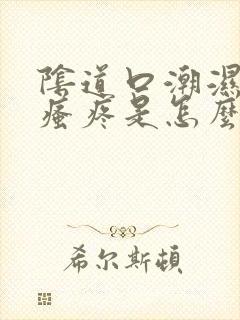 陰道口潮濕
瘙疼是怎麼
希尔斯頓